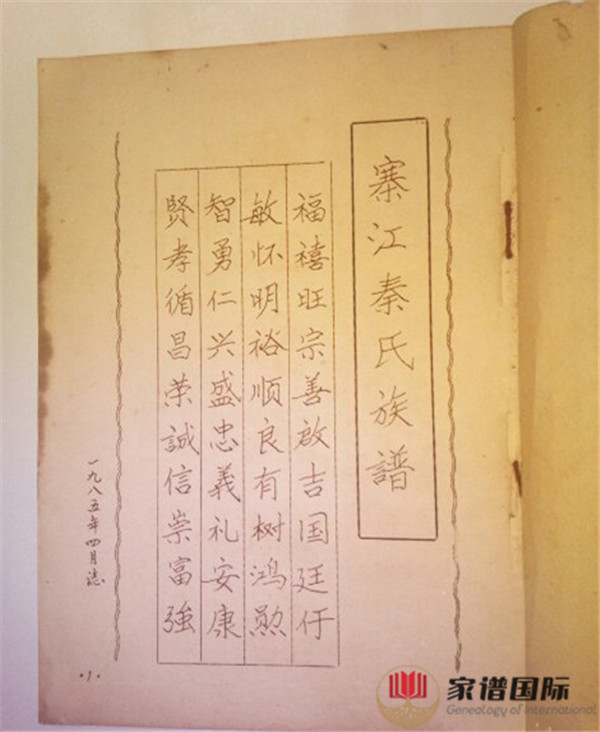 寨江秦氏族譜
福禧旺宗善啟吉国廷仔
敏怀明裕顺良有树鸿勲
智勇仁兴盛忠義礼安康
賢孝循昌荣誠信崇富強
一九八五年四月誌
·1·
家谱国际
Genealogy of International